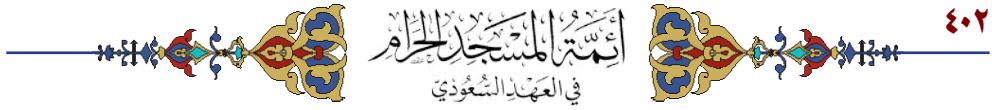 ٤٠٢
أَئِمَّةُ المَسْجِدِ الحَرَامِ
فِي العَهْدِ السُّعُودِيّ